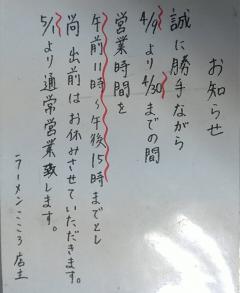 お知らせ
誠に勝手ながら
4/9より4/30までの間
営業時間を
午前11時〜午後15時までとし
尚出前はお休みさせていただきます。
5/1より通常営業致します。
ラーメンこころ店主